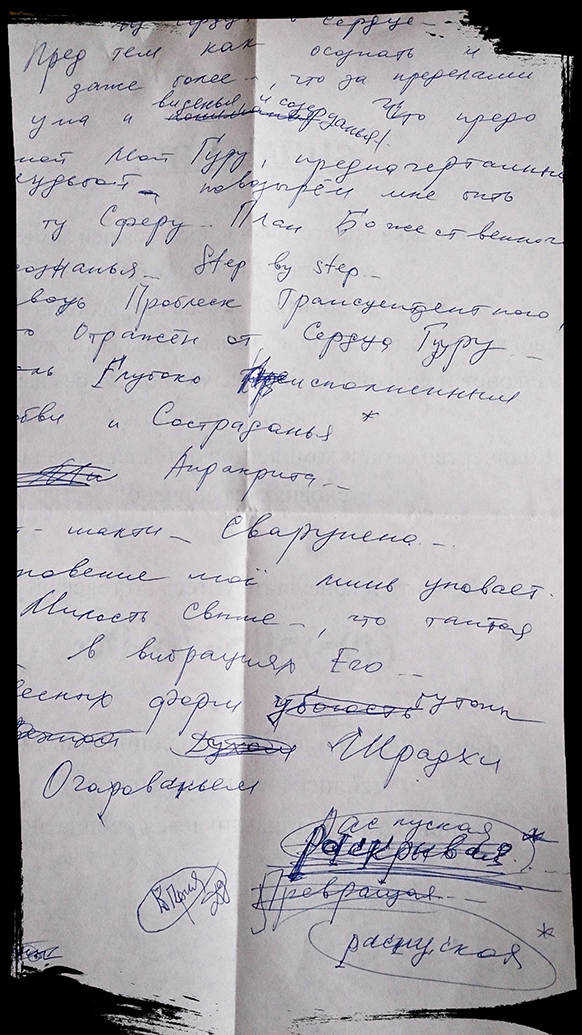 Сердце
Пред тем как осознать и
даже более -, что за пределами
виденья и созерданья!
ума и Что предо
мной Мой Гуру, предначертаньем
судьбой -
ту Сферу - План Божественного
сознанья - Step by step -
Проблеск Трансцендентного!
Отражён от Сердца Гуру -
Глубоко преисполненным
и Состраданья *
Апракрита -
- шакти - Сварупена -
мой лишь уповает.
Милость Свыше -, что таится
в вибрациях Его -
форм убогость
Духом Шрадхи
Очарованьем
распуская *
раскрывая
Превращая -
распуская *